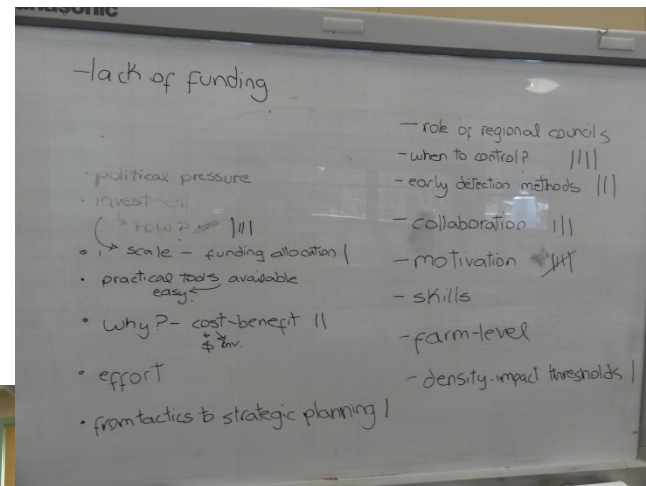 -lack of funding
• political pressure
• investment
how? |||
• scale - funding allocation |
• practical tools available
easy
• why? - cost-benefit ||
$ Env.
• effort
• from tactics to strategic planning |
- role of regional councils
- when to control? ||||
- early detection methods |||
- collaboration |||
- motivation
- skills
- farm-level
- density-impact thresholds |